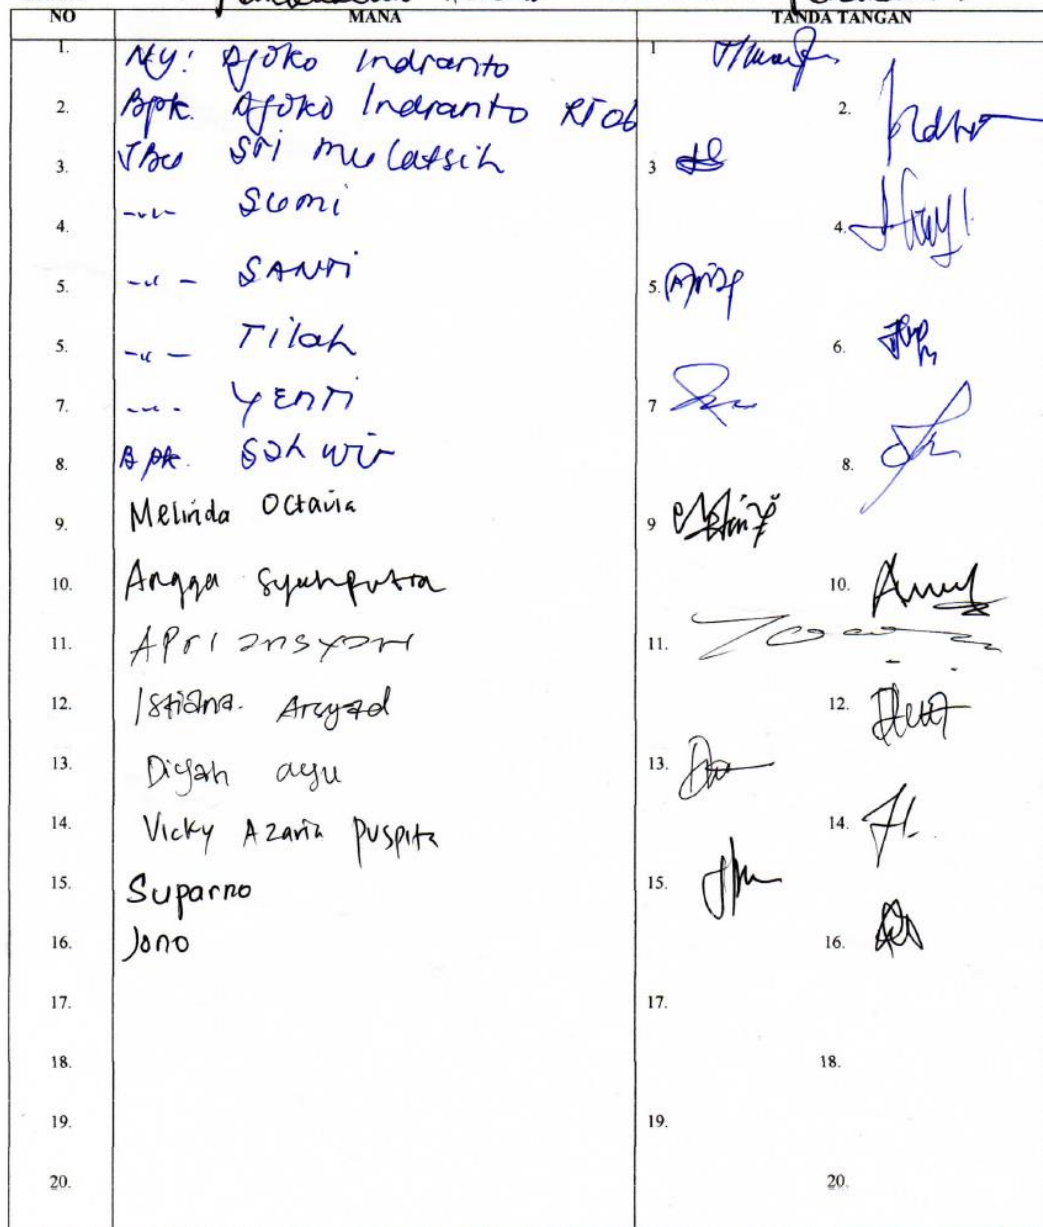 NO MANA TANDA TANGAN
1. Ny: Djoko Indranto 1
2. Bpk. Djoko Indranto RT 06 2.
3. Ibu Sri mulatsih 3
4. -"- Sumi 4.
5. -"- SANTi 5.
5. -"- Tilah 6.
7. -"- YENTi 7
8. Bpk. 8.
9. Melinda Octavia 9
10. Angga Syahputra 10.
11. APriansyah 11.
12. Istiana. Arsyad 12.
13. Diyah ayu 13.
14. Vicky Azaria Puspita 14.
15. Suparno 15.
16. Jono 16.
17. 17.
18. 18.
19. 19.
20. 20.